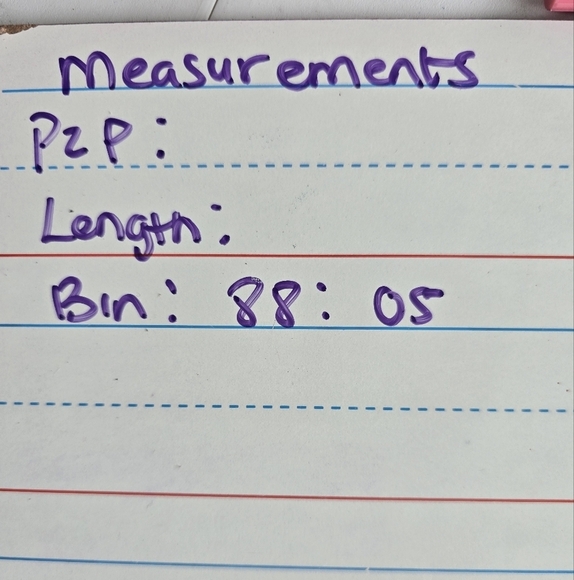 Measurements
P2P:
Length:
Bin: 88: 05